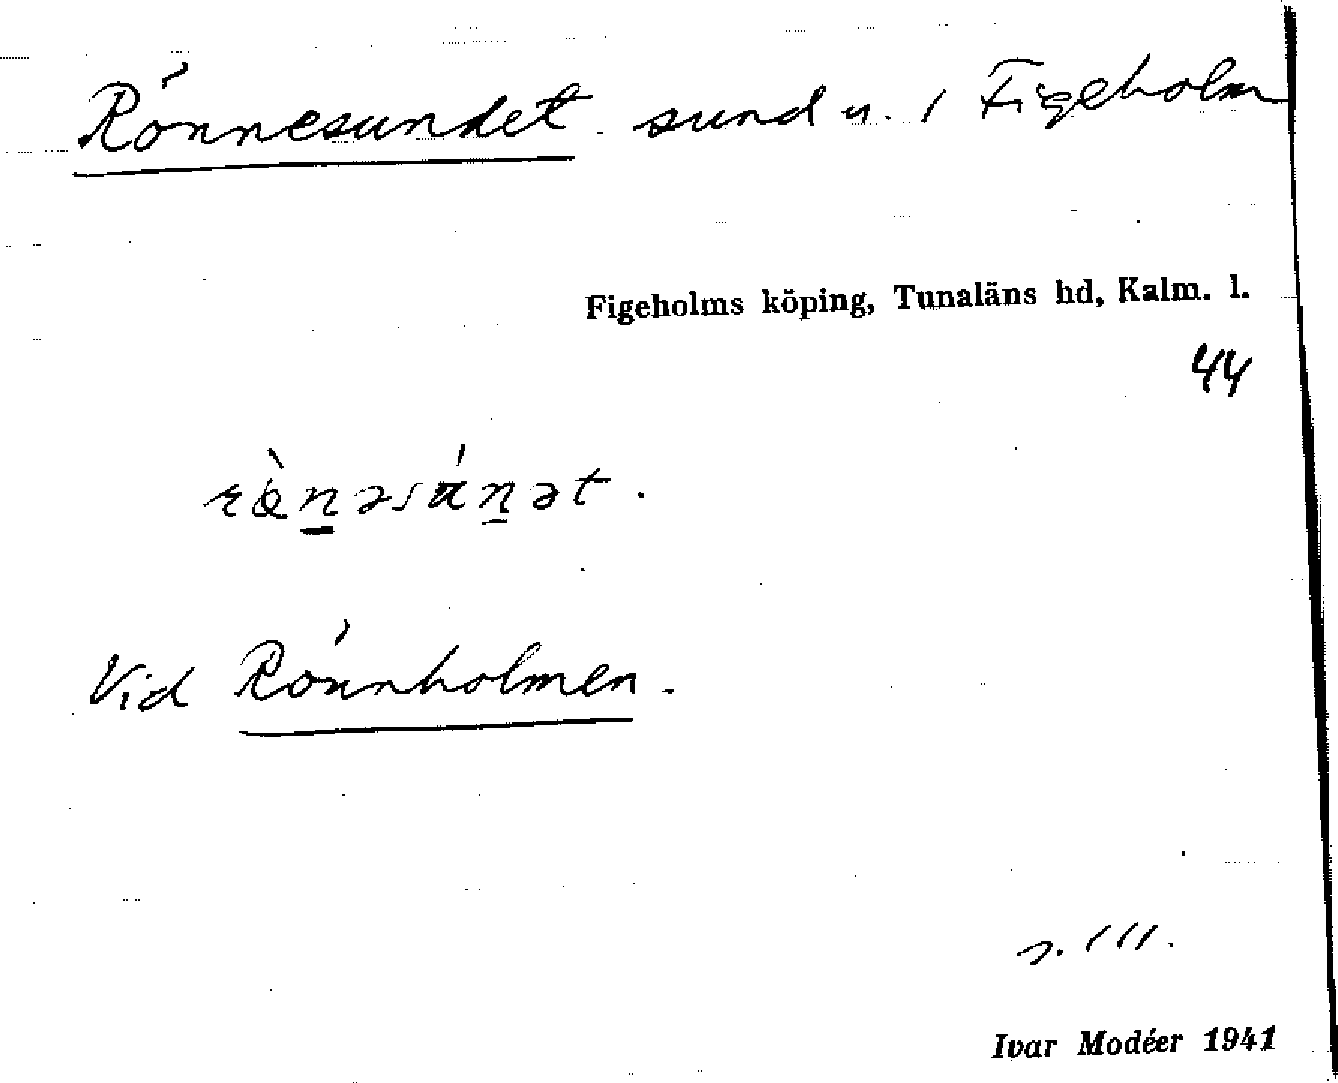 Rönnesundet. sund u. / Figeholm
Figeholms köping, Tunaläns hd, Kalm. l.
44
Vid Rönnholmen.
s. 111.
Ivar Modéer 1941